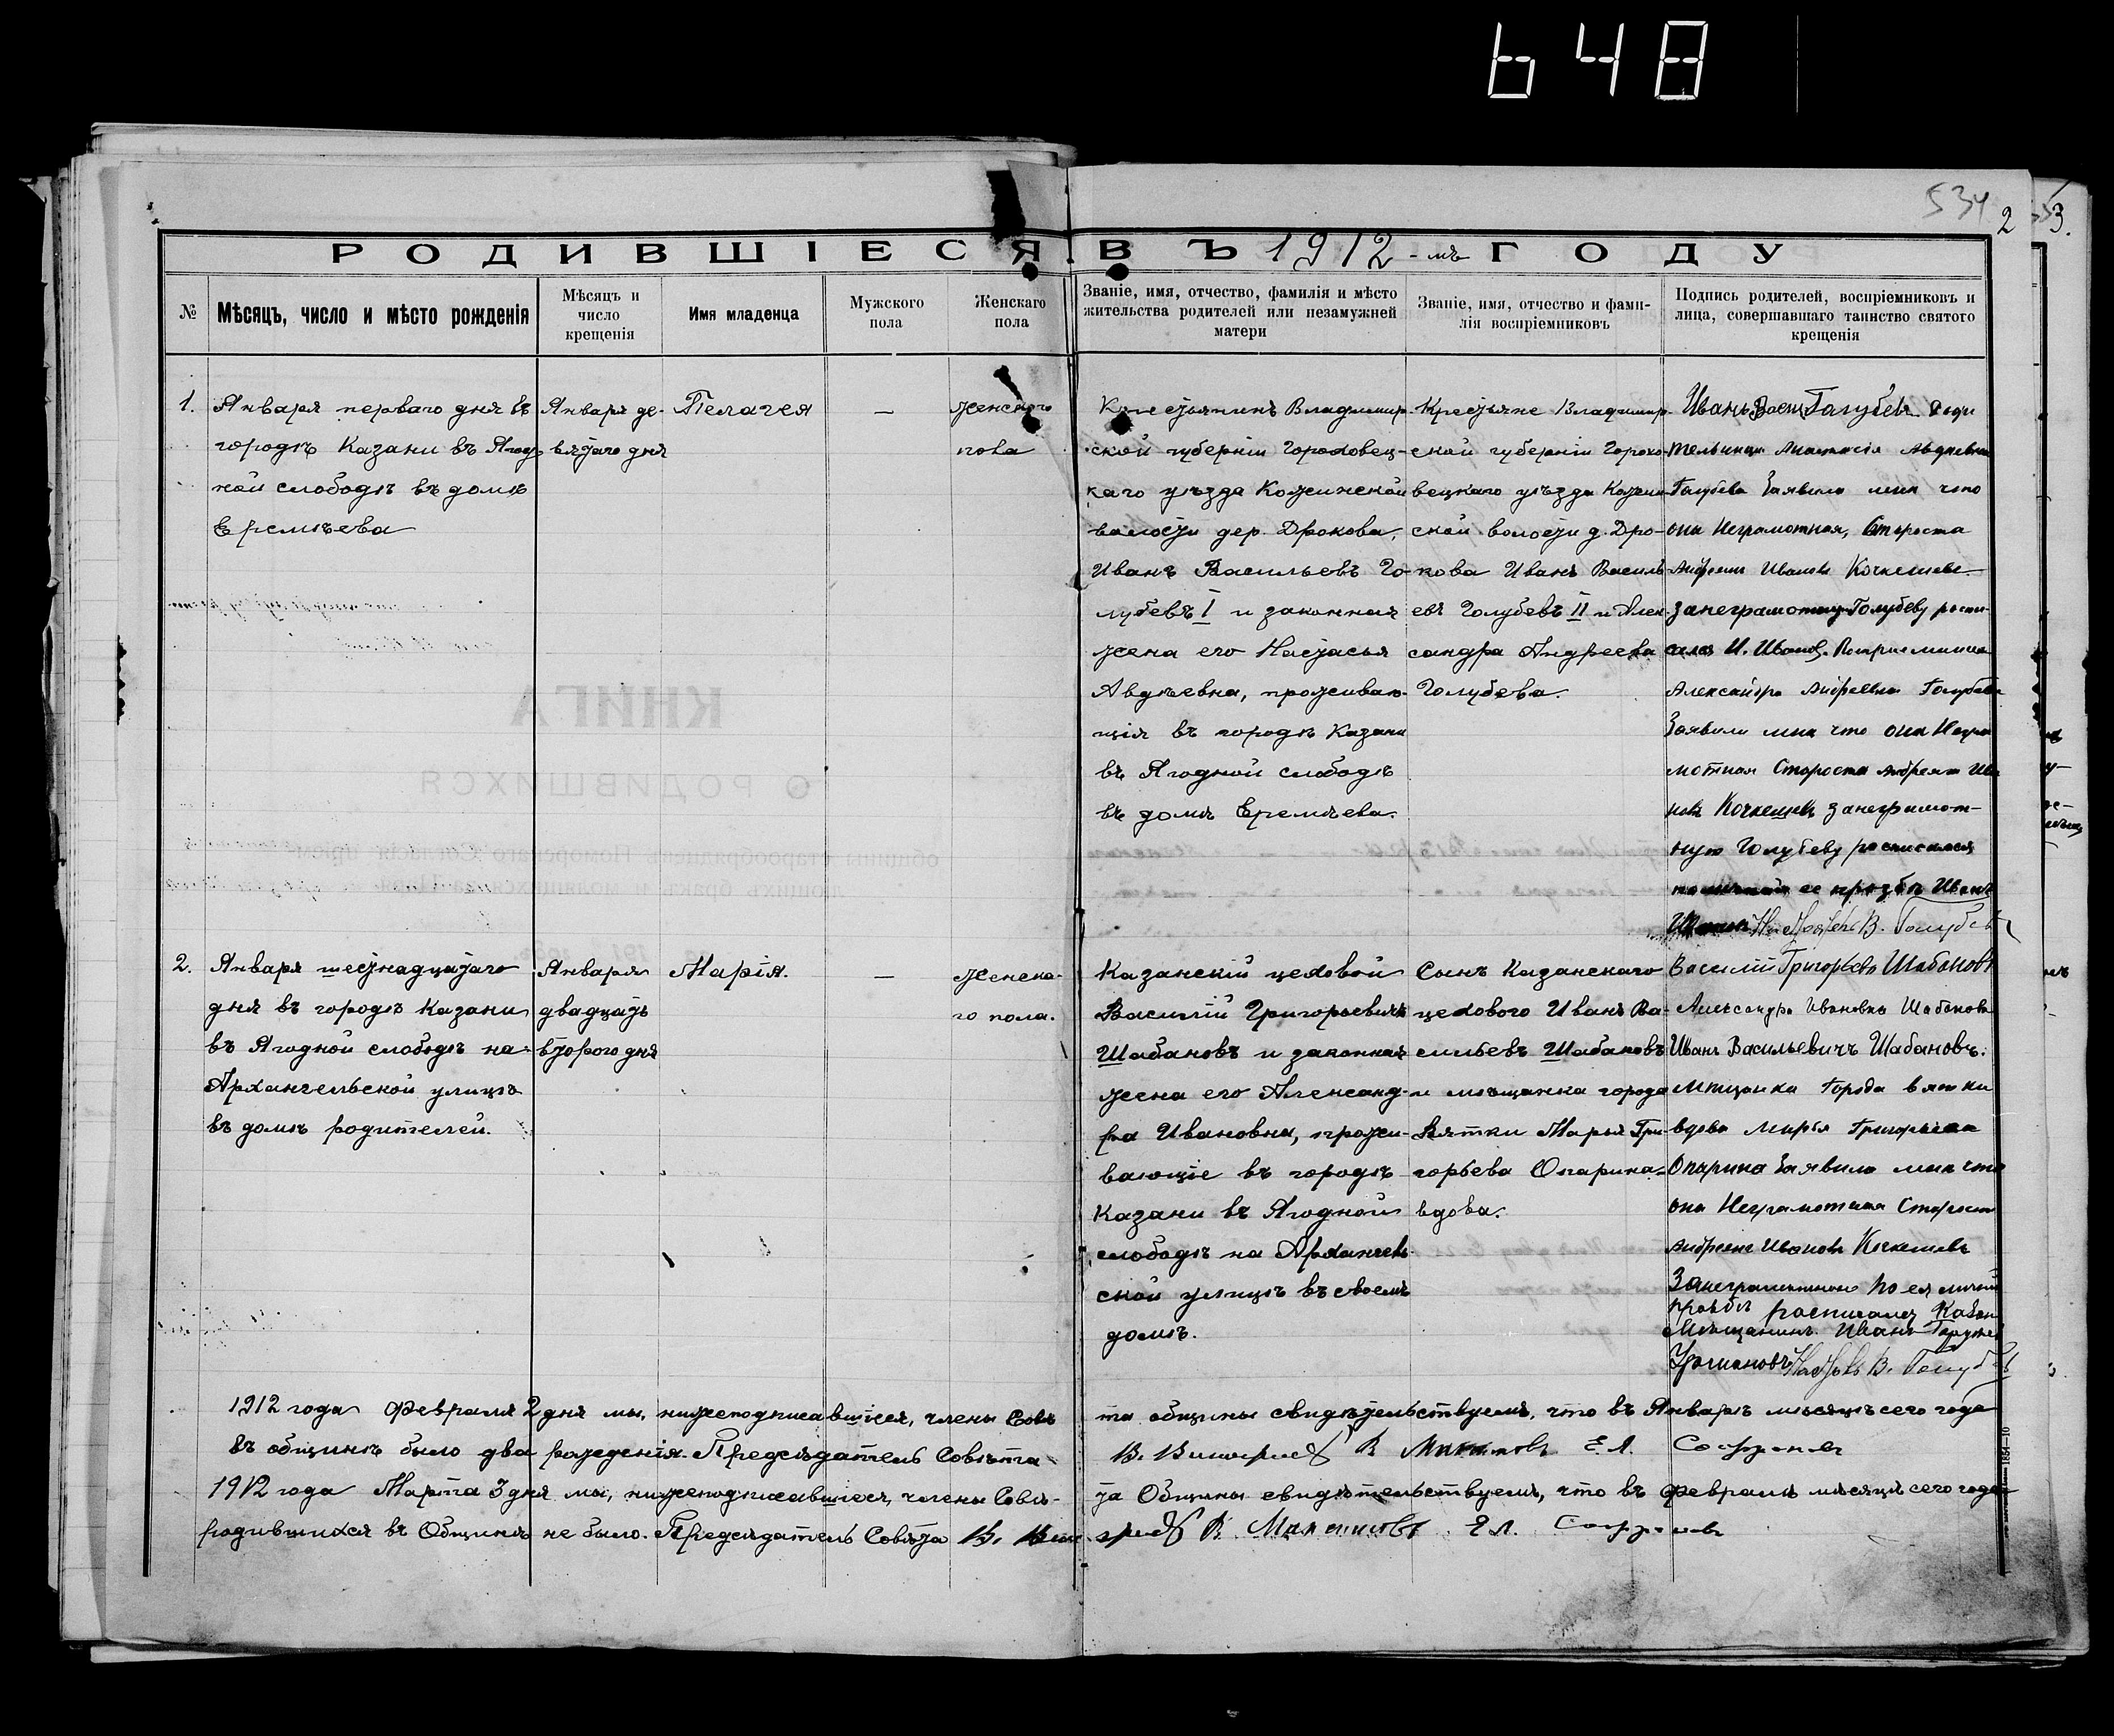 648
534 2
3.
РОДИВШІЕСЯ ВЪ 1912-мъ ГОДУ
№
Мѣсяцъ, число и мѣсто рожденія
Мѣсяцъ и
число
крещенія
Имя младенца
Мужского
пола
Женскаго
пола
Званіе, имя, отчество, фамилія и мѣсто
жительства родителей или незамужней
матери
Званіе, имя, отчество и фами-
лія воспріемниковъ
Подпись родителей, воспріемниковъ и
лица, совершавшаго таинство святого
крещенія
1.
Января перваго дня въ
городѣ Казани въ Ягод
ной слободѣ въ домѣ
Еремѣева
Января де-
вятаго дня
Пелагея
—
женскаго
пола
Крестьянинъ Владимир-
ской губерніи Гороховец-
каго уѣзда Кожинской
волости дер. Дрокова,
Иванъ Васильевъ Го-
лубевъ I и законная
жена его Настасья
Авдѣевна, проживаю-
щія въ городѣ Казани
въ Ягодной слободѣ
въ домѣ Еремѣева.
Крестьяне Владимир-
ской губерніи Горохо-
вецкаго уѣзда Кожин-
ской волости д. Дро-
кова Иванъ Василь-
евъ Голубевъ II и Алек-
сандра Андреева
Голубева.
Иванъ Васил Голубевъ Роди
тельница Анастасія Авдиевна
Голубева Заявила мнѣ что
она Неграмотная, Староста
Андреянъ Ивановъ
за неграмотную Голубеву роспи-
салъ И. Ивановъ.
Александра Андреевна Голубева
Заявила мнѣ что она Негра
мотная Староста Андреянъ Ива
новъ за неграмот-
ную Голубеву росписался
ее прозбѣ Иванъ
В. Голубевъ
2.
Января шестнадцатаго
дня въ городѣ Казани
въ Ягодной слободѣ на
Архангельской улицѣ
въ домѣ родителей.
Января
двадцать
второго дня
Марія.
—
женска-
го пола.
Казанскій цеховой
Василій Григорьевичъ
Шабановъ и законная
жена его Александ-
ра Ивановна, прожи-
вающіе въ городѣ
Казани въ Ягодной
слободѣ на Архангель-
ской улицѣ въ своемъ
домѣ.
Сынъ Казанскаго
цехового Иванъ Ва-
сильевъ Шабановъ
и мѣщанка города
Вятки Марья Гри-
горьева Опарина-
вдова.
Василій Григорьевъ Шабановъ
Александра Ивановна Шабанова
Иванъ Васильевичъ Шабановъ.
Мещанка Города Вятки
вдова Марья Григорьева
Опарина Заявила мнѣ что
она Неграмотная Староста
Андреянъ Ивановъ
За неграмотною по ея личной
прозбѣ росписался Казан
Мѣщанинъ Иванъ
В. Голубевъ
1912 года Февраля 2 дня мы, нижеподписавшіеся, члены Совѣ
та общины свидѣтельствуемъ, что въ Январѣ мѣсяцѣ сего года
въ общинѣ было два рожденія. Предсѣдатель Совѣта
1912 года Марта 3 дня мы, нижеподписавшіеся, члены Совѣ-
та Общины свидѣтельствуемъ, что въ Февралѣ мѣсяцѣ сего года
родившихся въ Общинѣ не было. Предсѣдатель Совѣта